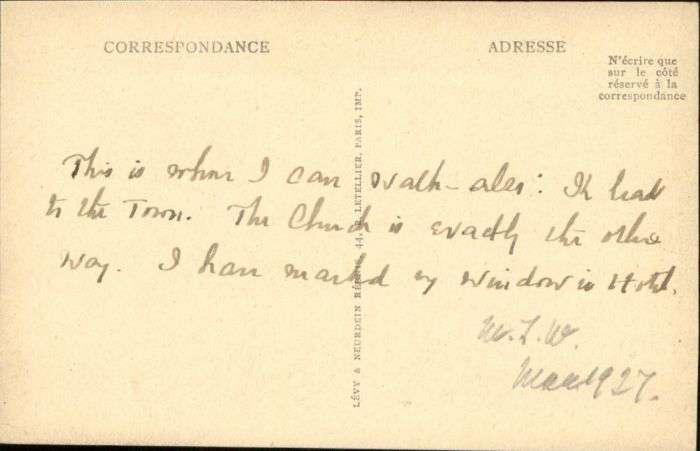 CORRESPONDANCE
ADRESSE
N'écrire que
sur le côté
réservé à la
correspondance
LÉVY & NEURDEIN RÉUNIS, 44, R. LETELLIER, PARIS, IMP.
This is where I can walk - It lead
to the Town. The Church is exactly the other
way. I have marked my window in Hotel.
M.L.W.
1927.